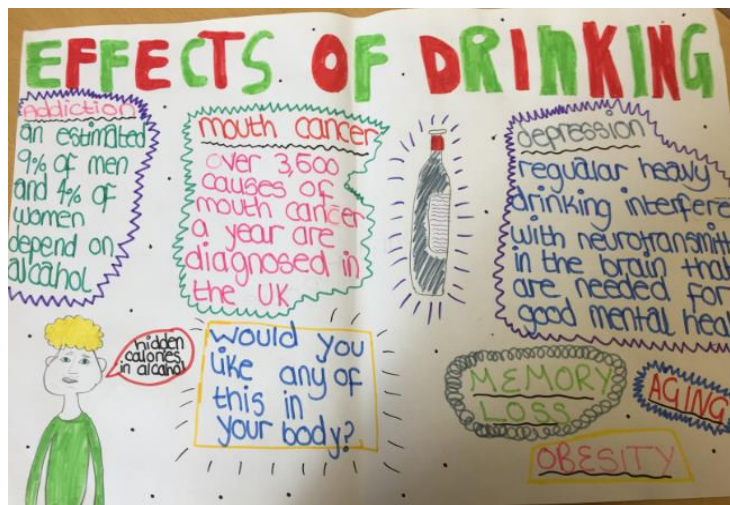 EFFECTS OF DRINKING
Addiction
an estimated
9% of men
and 4% of
women
depend on
alcahol
mouth cancer
over 3,500
causes of
mouth cancer
a year are
diagnosed in
the UK
depression
regualar heavy
drinking interfere
with neurotransmitt
in the brain that
are needed for
good mental heal
hidden
calories
in alcahol
would you
like any of
this in
your body?
MEMORY
LOSS
AGING
OBESITY